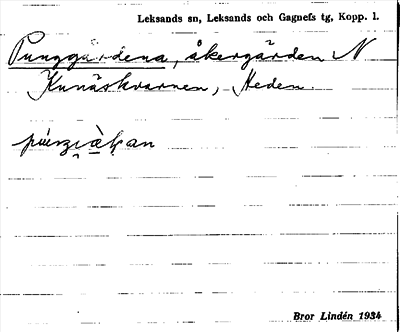 Leksands sn, Leksands och Gagnefs tg, Kopp. l.
Punggärdena, åkergärden N
Kunäskvarnen, Heden.
Bror Lindén 1934